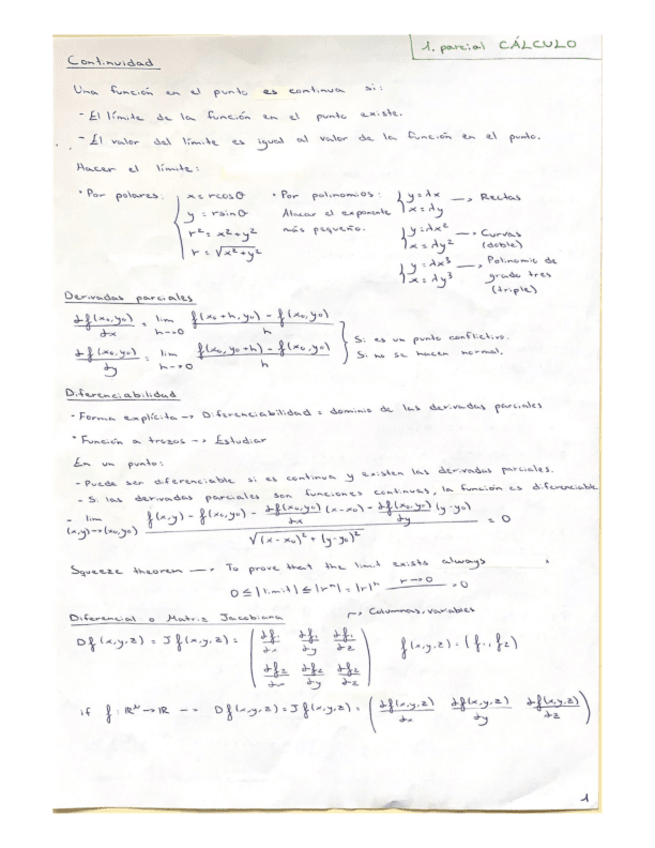 1. parcial CÁLCULO
Continuidad
Una función en el punto es continua si:
- El límite de la función en el punto existe.
- El valor del límite es igual al valor de la función en el punto.
Hacer el límite:
· Por polares: { x = rcosθ
y = rsinθ
r² = x²+y²
r = √x²+y²
· Por polinomios:
Atacar el exponente
más pequeño.
{ y = λx
x = λy → Rectas
{ y = λx²
x = λy² → Curvas (doble)
{ y = λx³
x = λy³ → Polinomio de
grado tres
(triple)
Derivadas parciales
∂f(x₀,y₀)/∂x = lim h→0 f(x₀+h,y₀) - f(x₀,y₀)/h
∂f(x₀,y₀)/∂y = lim h→0 f(x₀,y₀+h) - f(x₀,y₀)/h
} Si es un punto conflictivo.
Si no se hacen normal.
Diferenciabilidad
· Forma explícita → Diferenciabilidad = dominio de las derivadas parciales
· Función a trozos → Estudiar
En un punto:
- Puede ser diferenciable si es continua y existen las derivadas parciales.
- Si las derivadas parciales son funciones continuas, la función es diferenciable
- lim (x,y)→(x₀,y₀) f(x,y) - f(x₀,y₀) - ∂f(x₀,y₀)/∂x (x-x₀) - ∂f(x₀,y₀)/∂y (y-y₀) / √(x-x₀)² + (y-y₀)² = 0
Squeeze theorem → To prove that the limit exists always
0 ≤ |limit| ≤ |rⁿ| = |r|ⁿ r→0 → 0
Diferencial o Matriz Jacobiana
→ Columnas, variables
Df(x,y,z) = Jf(x,y,z) = ( ∂f₁/∂x ∂f₁/∂y ∂f₁/∂z
∂f₂/∂x ∂f₂/∂y ∂f₂/∂z )
f(x,y,z) = (f₁, f₂)
if f: ℝᴺ→ℝ → Df(x,y,z) = Jf(x,y,z) = ( ∂f(x,y,z)/∂x ∂f(x,y,z)/∂y ∂f(x,y,z)/∂z )
1